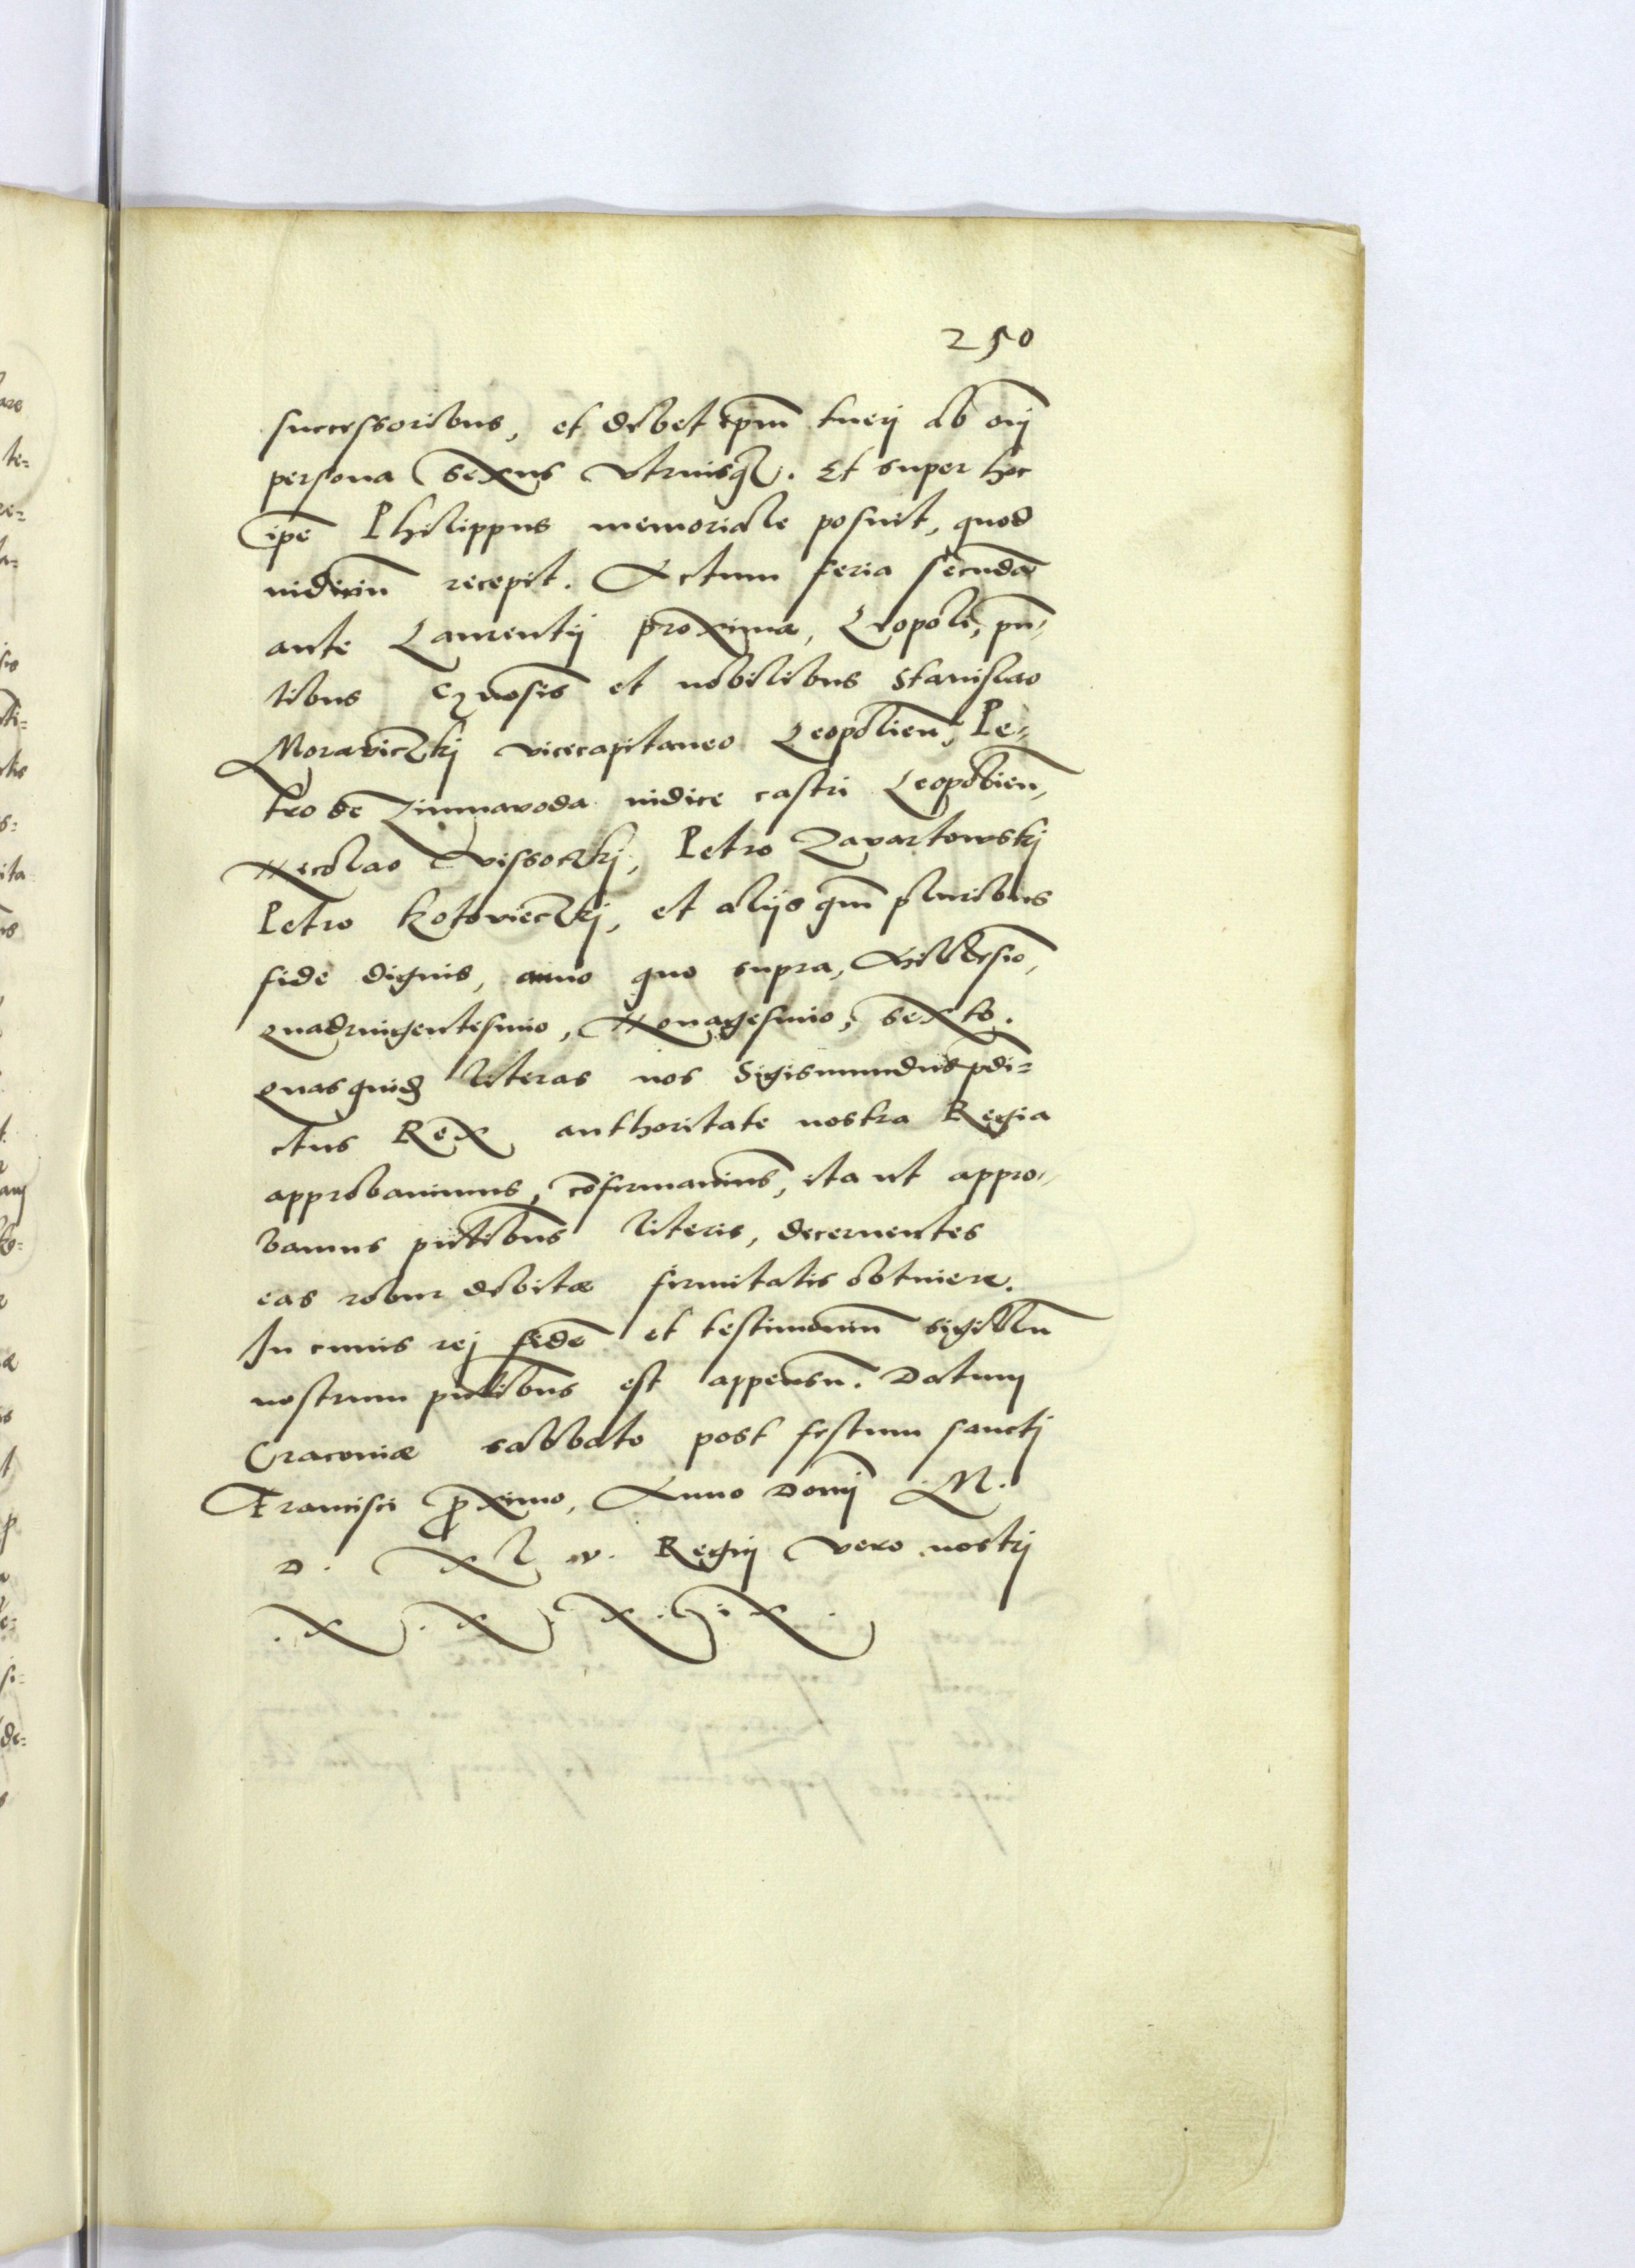 250
successoribus, et debet ipm̄ tuerj ab om̄j
persona sexus vtriusq₃. Et super hoc
ipē Philippus memoriale posuit, quod
iudiciū recepit. Actum feria secunda
ante Laurentij proxima, Leopoli, pn̄-
tibus g̃nosis et nobilibus Stanislao
Moraviczkj vicecapitaneo Leopolien̄, Pe-
tro de Zimnavoda iudice castri Leopolien̄,
Nicolao Vissoczkj, Petro Zavartowskj
Petro Kotovieczkj, et alijs qm̄ pluribus
fide dignis, anno quo supra, Millesīo,
quadringentesimo, Nonagesimo, sexto.
quas quid₃ literas nos Sigismundus pdi-
ctus Rex authoritate nostra Regia
approbavimus, cōfirmavimus, ita ut appro-
bamus pn̄tibus literis, decernentes
eas robur debitæ firmitatis obtinere.
In cuius rej fidē et testimoniū sigillū
nostrum pn̄tibus est appensū. Datum
Cracoviæ sabbato post festum sanctj
Francisci proximo, Anno Domj M.
D. Xl iv. Regnj vero nostrj
.X.X.X.iX.